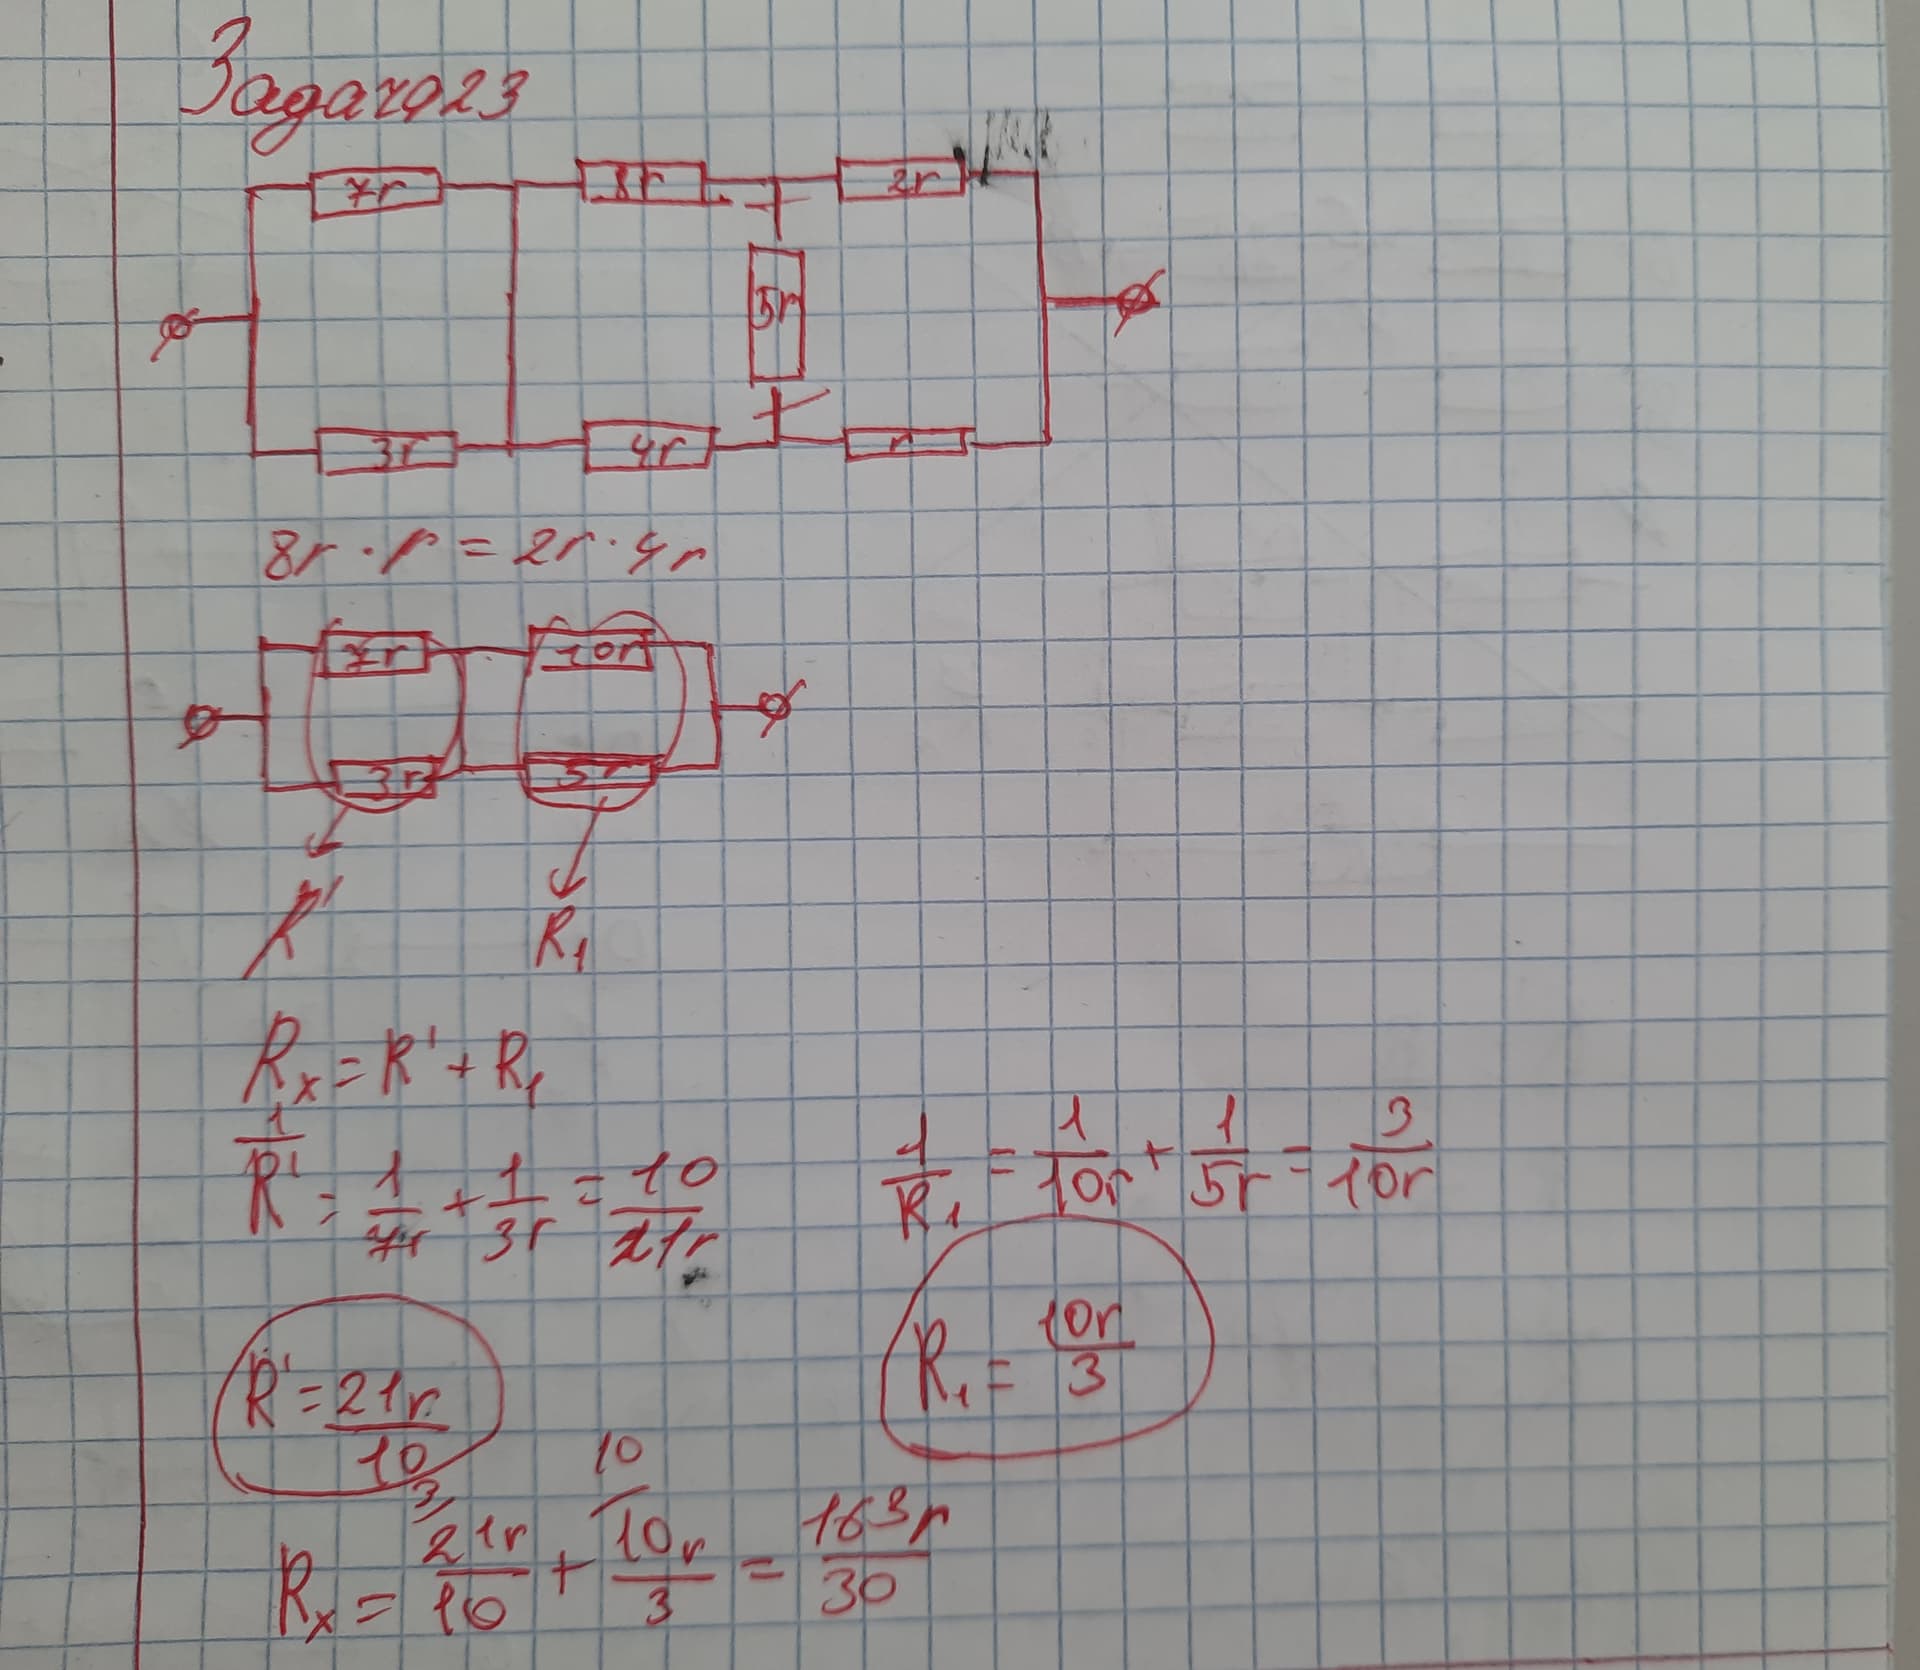 Задача 23
7r 8r 2r
5r
3r 4r r
8r · r = 2r · 4r
7r 10r
3r 5r
R' R₁
Rₓ = R' + R₁
1/R' = 1/7r + 1/3r = 10/21r
1/R₁ = 1/10r + 1/5r = 3/10r
R' = 21r/10
R₁ = 10r/3
3/ 10/
Rₓ = 21r/10 + 10r/3 = 163r/30